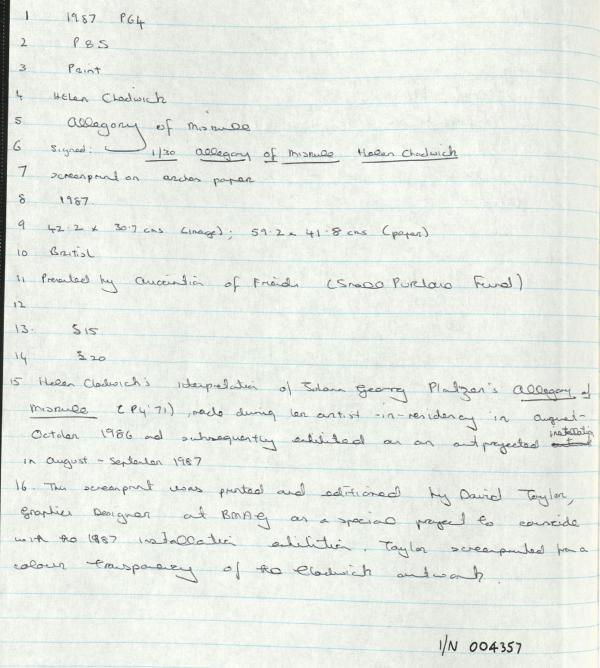 1 1987 P64
2 PBS
3 Print
4 Helen Chadwick
5 Allegory of Misrule
6 Signed: 1/30 Allegory of Misrule Helen Chadwick
7 screenprint on arches paper
8 1987
9 42.2 x 30.7 cms (image); 59.2 x 41.8 cms (paper)
10 British
11 Presented by Association of Friends (Small Purchase Fund)
12
13. $15
14 $20
15 Helen Chadwick's interpretation of Johann Georg Platzer's Allegory of
Misrule (P4'71), made during her artist-in-residency in August-
October 1986 and subsequently exhibited as an art projected installation
in August - September 1987
16. This screenprint was printed and editioned by David Taylor,
Graphics Designer at BMAG as a special project to coincide
with the 1987 installation exhibition. Taylor screenprinted from a
colour transparency of the Chadwick artwork.
I/N 004357